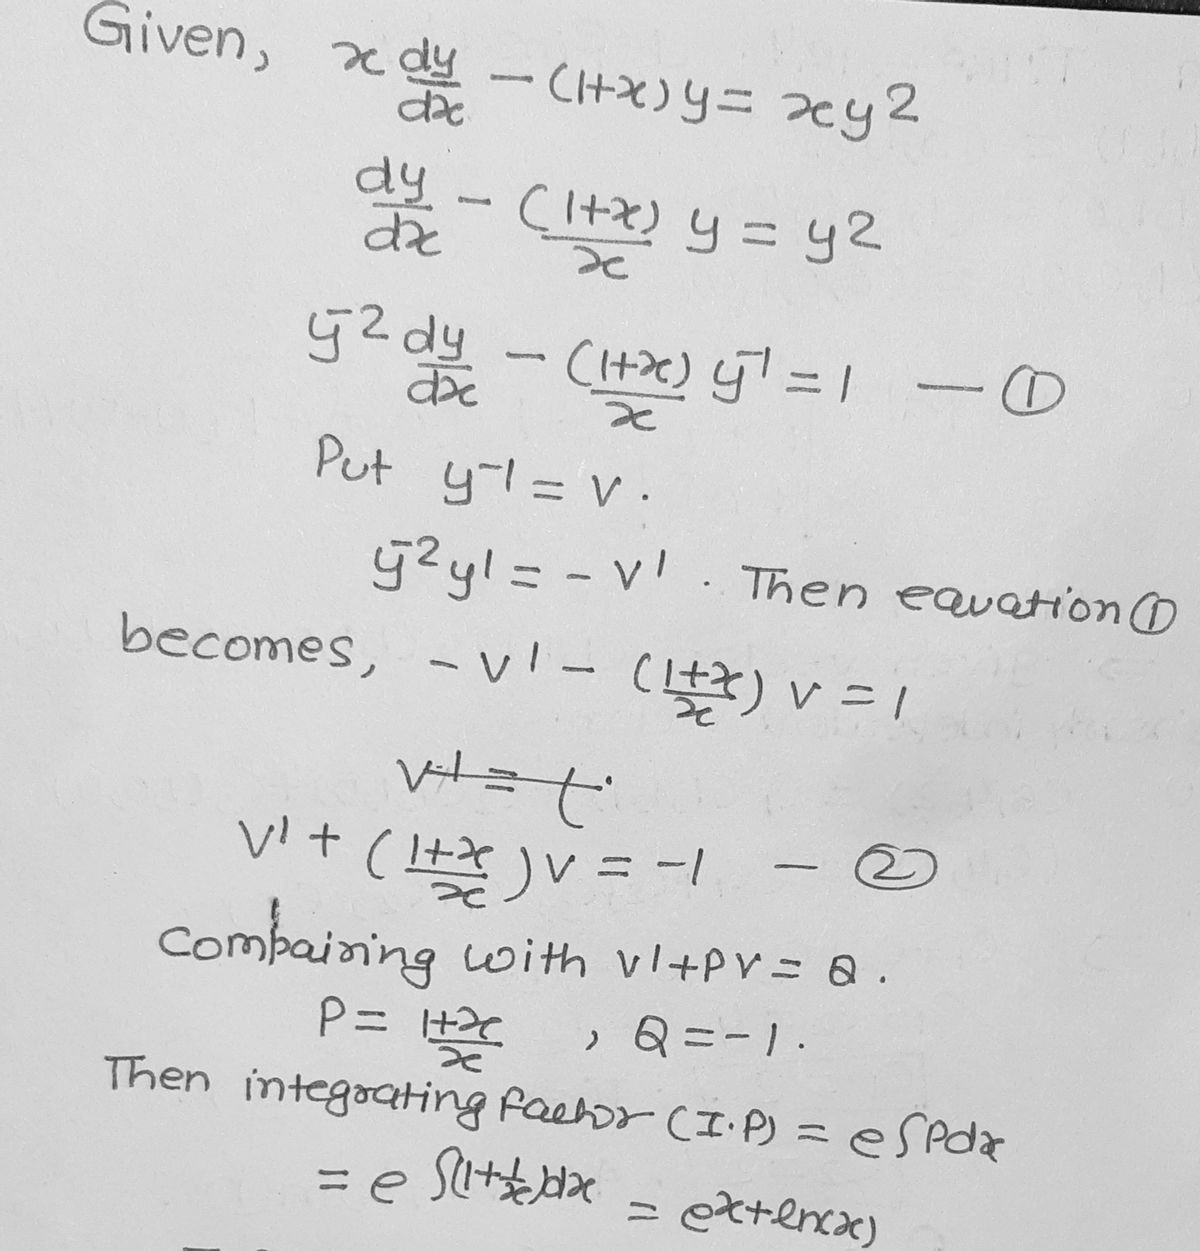 Given, x dy/dx - (1+x)y = xy²
dy/dx - (1+x)/x y = y²
y⁻² dy/dx - (1+x)/x y⁻¹ = 1 — ①
Put y⁻¹ = v.
y⁻² y' = - v'. Then equation ①
becomes, - v' - (1+x/x) v = 1
v' + (1+x/x) v = -1 — ②
Combairing with v'+pv = Q.
P = 1+x/x , Q = -1.
Then integrating factor (I.P) = e∫Pdx
= e ∫(1+1/x)dx = e^x+ln(x)